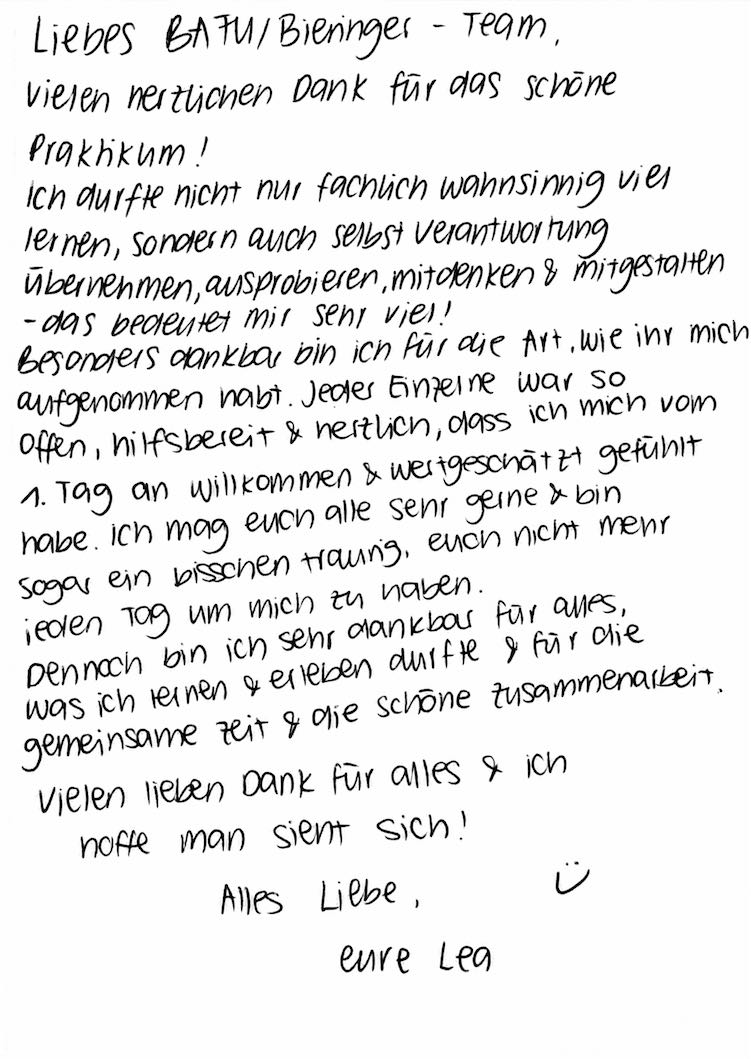 Liebes BAFU/Bieringer - Team,
vielen herzlichen Dank für das schöne
Praktikum!
Ich durfte nicht nur fachlich wahnsinnig viel
lernen, sondern auch selbst Verantwortung
übernehmen, ausprobieren, mitdenken & mitgestalten
- das bedeutet mir sehr viel!
Besonders dankbar bin ich für die Art, wie ihr mich
aufgenommen habt. Jeder Einzelne war so
offen, hilfsbereit & herzlich, dass ich mich vom
1. Tag an willkommen & wertgeschätzt gefühlt
habe. Ich mag euch alle sehr gerne & bin
sogar ein bisschen traurig, euch nicht mehr
jeden Tag um mich zu haben.
Dennoch bin ich sehr dankbar für alles,
was ich lernen & erleben durfte & für die
gemeinsame Zeit & die schöne Zusammenarbeit.
Vielen lieben Dank für alles & ich
hoffe man sieht sich!
Alles Liebe, Ü
eure Lea